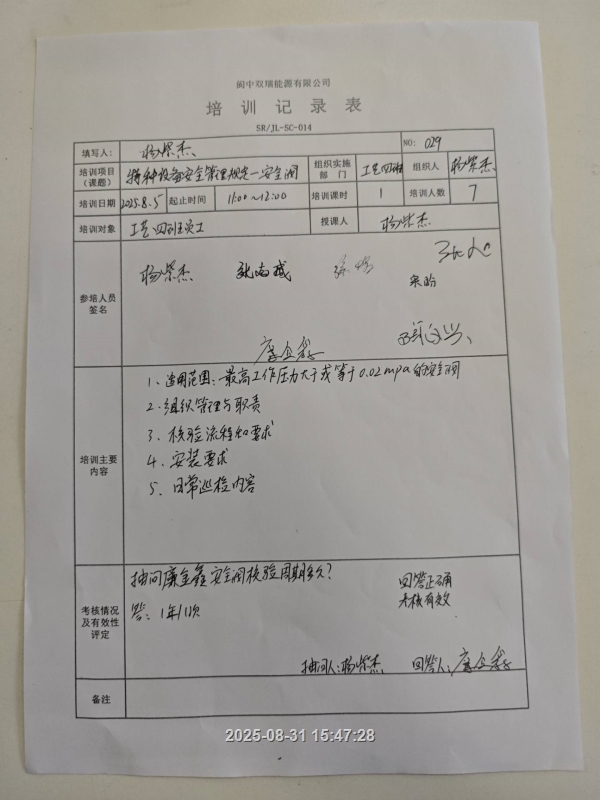 阆中双瑞能源有限公司
培训记录表
SR/JL-SC-014
填写人： 杨紫杰 NO: 029
培训项目（课题） 特种设备安全管理规定—安全阀 组织实施部门 工艺四班 组织人 杨紫杰
培训日期 2025.8.5 起止时间 11:00~12:00 培训课时 1 培训人数 7
培训对象 工艺四班员工 授课人 杨紫杰
参培人员签名
杨紫杰
培训主要内容
1、适用范围：最高工作压力大于或等于0.02mpa的安全阀
2、组织管理与职责
3、校验流程和要求
4、安装要求
5、日常巡检内容
考核情况及有效性评定
抽问廉金鑫安全阀校验周期多久？
答：1年/1次
回答正确
考核有效
抽问人：杨紫杰 回答人：廉金鑫
备注
2025-08-31 15:47:28